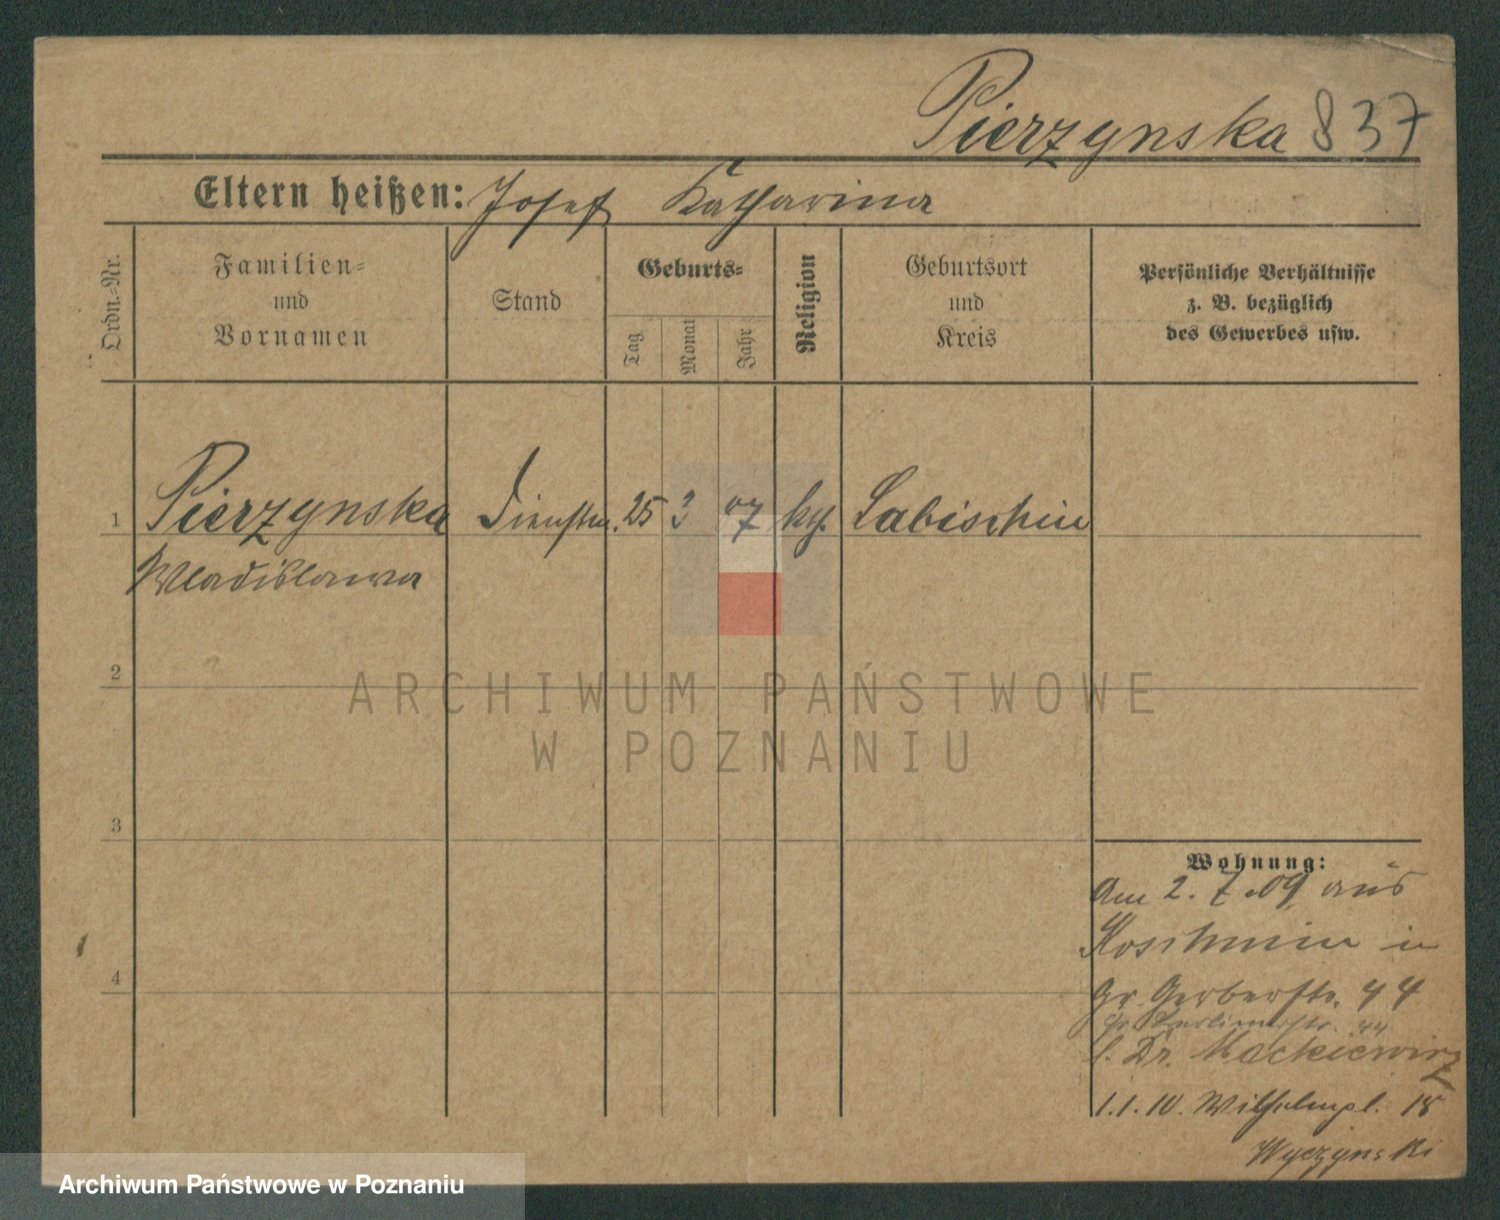 Pierzynska 837
Eltern heißen: Josef Katharina
Ordn.-Nr.
Familien-
und
Vornamen
Stand
Geburts-
Tag
Monat
Jahr
Religion
Geburtsort
und
Kreis
Persönliche Verhältnisse
z. B. bezüglich
des Gewerbes usw.
1 Pierzynska Dienstm. 25 3 87 kh. Labischin
Wladislawa
2
3
4
Wohnung:
Am 2. 7. 09 aus
Koschmin in
Gr. Gerberstr. 44
Gr. Berlinerstr. 44
b. Dr. Mackiewicz
1.1.10. Wilhelmpl. 18
Wyczynski
ARCHIWUM PAŃSTWOWE
W POZNANIU
Archiwum Państwowe w Poznaniu